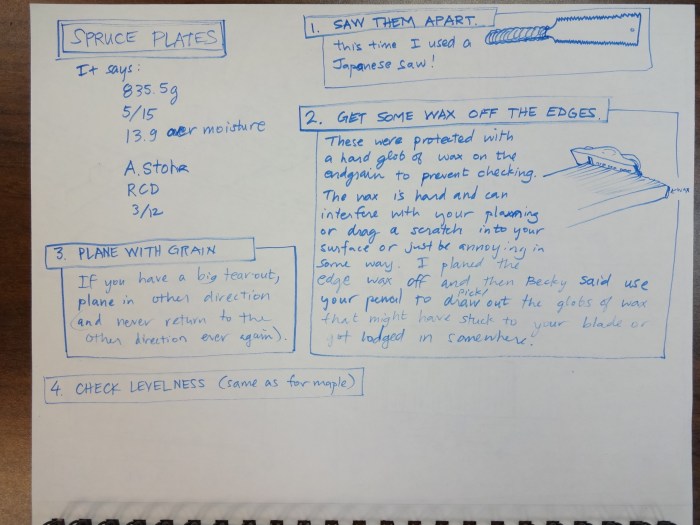 SPRUCE PLATES
It says:
835.5g
5/15
13.9 moisture
A. Stohr
RCD
3/12
1. SAW THEM APART.
this time I used a
Japanese saw!
2. GET SOME WAX OFF THE EDGES.
These were protected with
a hard glob of wax on the
endgrain to prevent checking.
The wax is hard and can
interfere with your planing
or drag a scratch into your
surface or just be annoying in
some way. I planed the
edge wax off and then Becky said use
your pencil to draw out the globs of wax
pick?
that might have stuck to your blade or
got lodged in somewhere.
wax
3. PLANE WITH GRAIN
If you have a big tearout,
plane in other direction
(and never return to the
other direction ever again).
4. CHECK LEVELNESS (same as for maple)